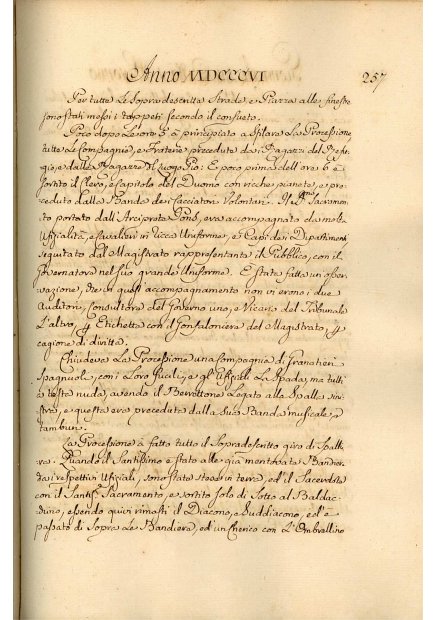 Anno MDCCCVI
257
Per tutte le sopradescritte Strade, e Piazza alle finestre
sono stati messi i tappeti secondo il consueto.
Poco dopo le ore 5 à principiato a sfilare la Processione
tutte le Compagnie, e Fraterie precedute da i Ragazzi del Refu-
gio, e dalle Ragazze del luogo Pio: E poco prima dell'ore 6 è
sortito il Clero, e Capitolo del Duomo con ricche pianete, e pre-
ceduto dalla Banda dei Cacciatori Volontarj. Il SS. Sacramen-
to portato dall'Arciprete era accompagnato da molta
Uffizialità, e Cavalieri in ricca Uniforme, e Capi dei Dipartimenti
seguitato dal Magistrato rappresentante il Pubblico, con il
Governatore nel suo grande Uniforme. E stata fatta un'osser-
vazione, che in quest'accompagnamento non vi erono i due
Auditori, Consultore del Governo uno, e Vicario del Tribunale
l'altro, Etichetta con il Gonfaloniere del Magistrato,
cagione di diritta.
Chiudeva la Processione una Compagnia di Granatieri
Spagnuoli, con i loro fucili, e gl'Uffiziali la Spada, ma tutti
a testa nuda, avendo il Berrettone legato alla Spalla sini-
stra, e questa era preceduta dalla sua Banda musicale, e
tamburi.
La Processione à fatto tutto il sopradescritto giro di
Quando il Santissimo è stato alle già mentovate Bandiere
dai respettivi Uffiziali, sono state stese in terra, ed il Sacerdote
con il Santis. Sacramento, è sortito solo di sotto al Baldac-
chino, essendo quivi rimasti il Diacono, e Suddiacono, ed è
passato di sopra le Bandiere, ed un Cherico con l'Ombrellino